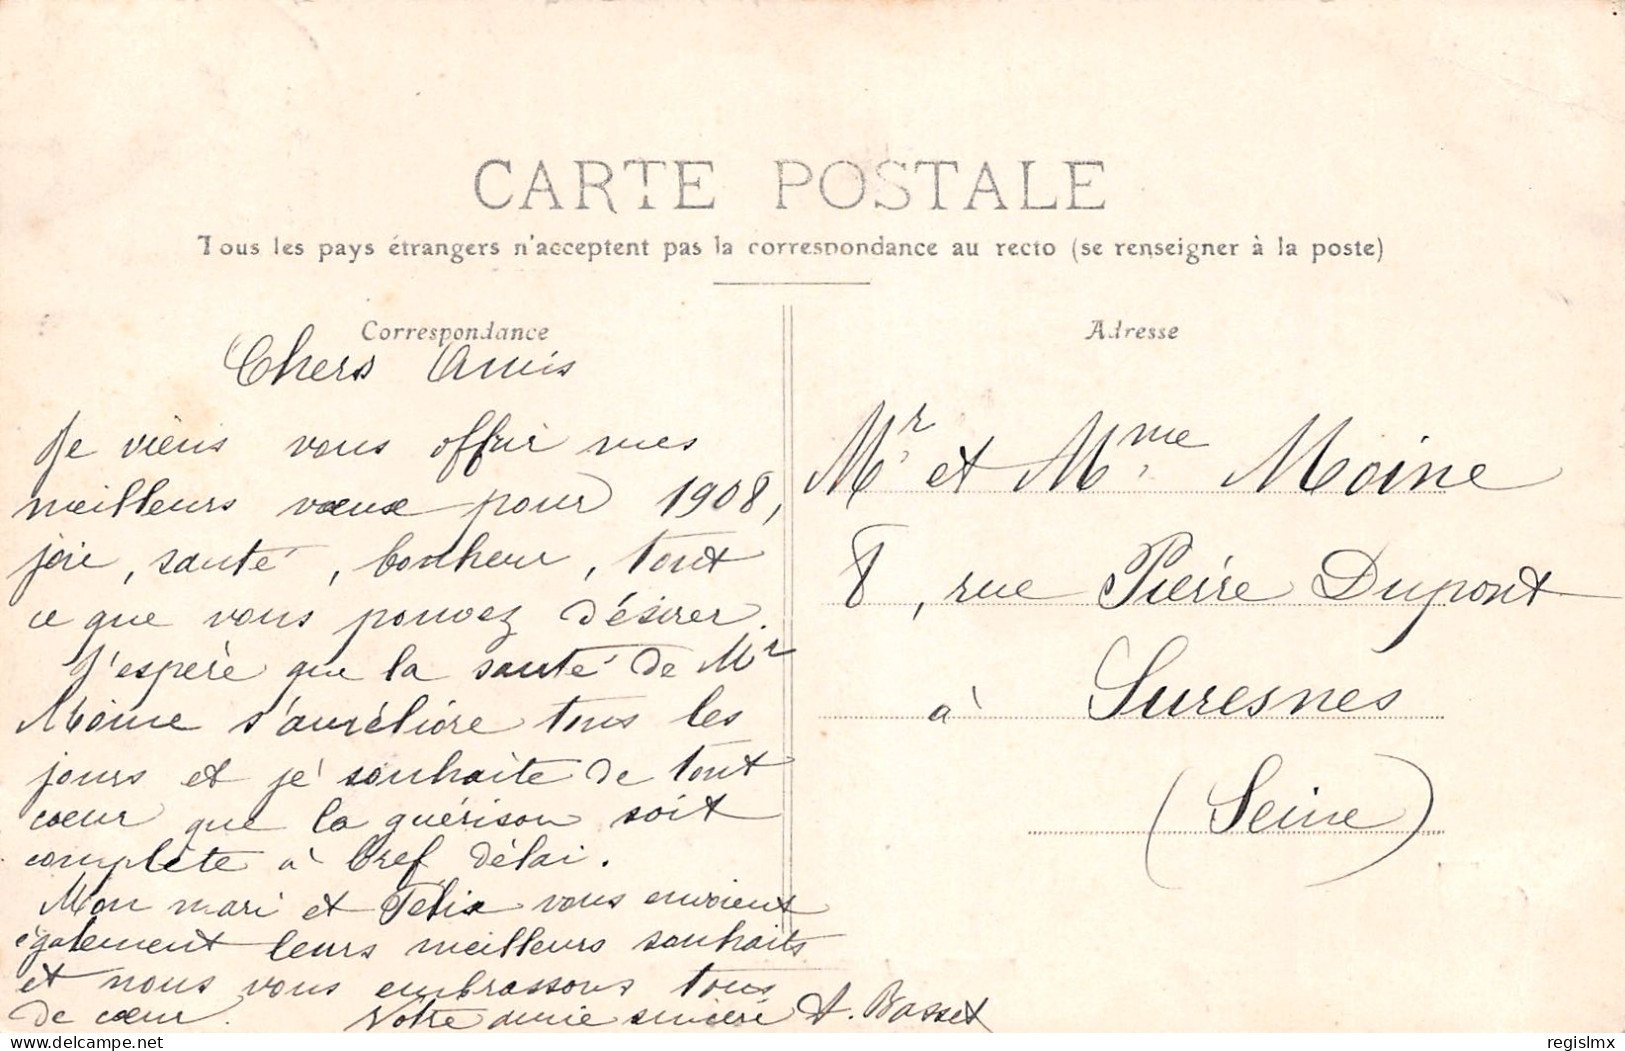 CARTE POSTALE
Tous les pays étrangers n'acceptent pas la correspondance au recto (se renseigner à la poste)
Correspondance
Chers Amis
Je viens vous offrir mes
meilleurs vœux pour 1908,
joie, santé, bonheur, tout
ce que vous pouvez désirer.
J'espère que la santé de Mr
Moine s'améliore tous les
jours et je souhaite de tout
cœur que la guérison soit
complète à bref délai.
Mon mari et Félix vous envoient
également leurs meilleurs souhaits
et nous vous embrassons tous
de cœur. Votre amie sincère A. Basset
Adresse
Mr et Mme Moine
8, rue Pierre Dupont
à Suresnes
(Seine)
delcampe.net
regislmx